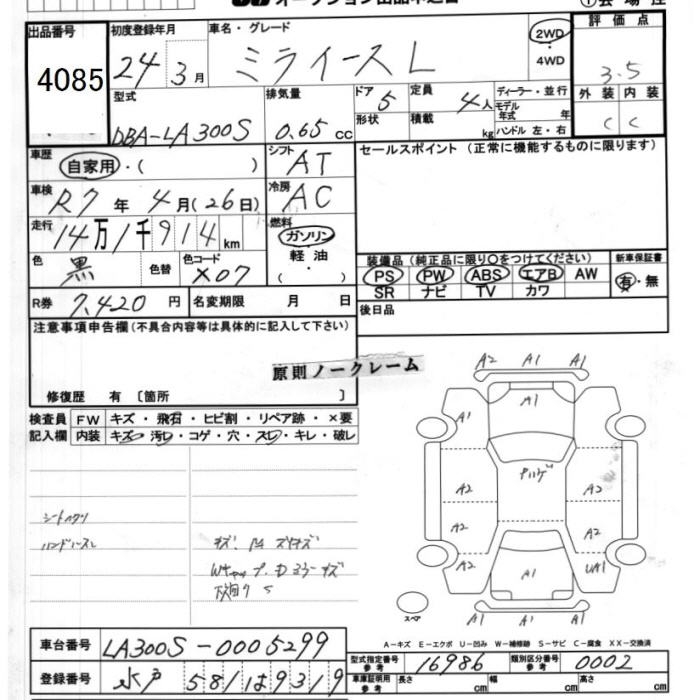 オークション出品申込書
出品番号
4085
初度登録年月
24年3月
車名・グレード
ミライース L
2WD
・
4WD
評価点
3.5
型式
DBA-LA300S
排気量
0.65 cc
ドア 5
形状
定員 4人
積載 kg
ディーラー・並行
モデル年式 年
ハンドル 左・右
外装 内装
C C
車歴
自家用・( )
シフト
AT
セールスポイント (正常に機能するものに限ります)
車検
R7年 4月(26日)
冷房
AC
走行
14万1千914km
燃料
ガソリン
軽油
・
色
黒
色替
色コード
X07
装備品(純正品に限り○をつけてください)
新車保証書
PS PW ABS エアB AW
有・無
SR ナビ TV カワ
R券 7,420円
名変期限 月 日
後日品
注意事項申告欄(不具合内容等は具体的に記入して下さい)
原則ノークレーム
修復歴 有〔箇所 〕
検査員
記入欄
FW キズ・飛石・ヒビ割・リペア跡・×要
内装 キズ・汚レ・コゲ・穴・スレ・キレ・破レ
A2 A1 A1
A1
A1
A2 A2
A2 A2
A2 A1 UA1
A1 A1 A1
スペア
A-キズ E-エクボ U-凹み W-補修跡 S-サビ C-腐食 XX-交換済
車台番号
LA300S-0005299
型式指定番号
参考
16986
類別区分番号
参考
0002
登録番号
水戸 581 は 9319
車庫証明用
参考
長さ cm
幅 cm
高さ cm